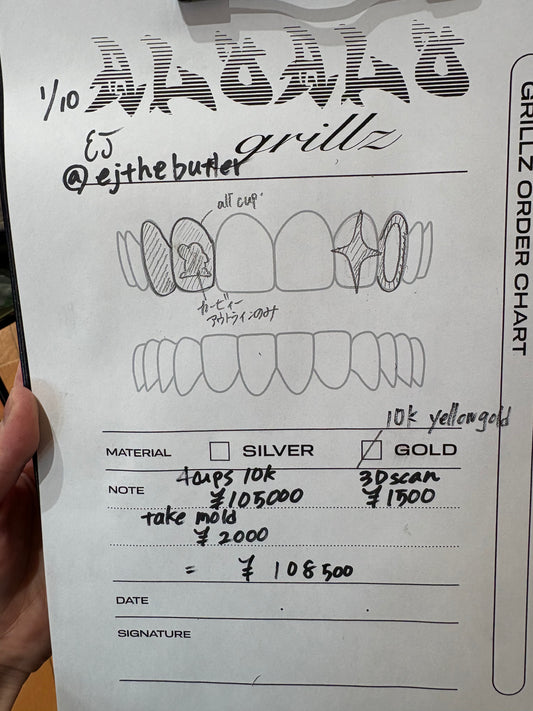 1/10
grillz
EJ
@ejthebutler
GRILLZ ORDER CHART
all cap
カービィー
アウトラインのみ
10k yellowgold
MATERIAL SILVER GOLD
NOTE 4caps 10k 3Dscan
¥105000 ¥1500
take mold
¥2000
= ¥108500
DATE . .
SIGNATURE